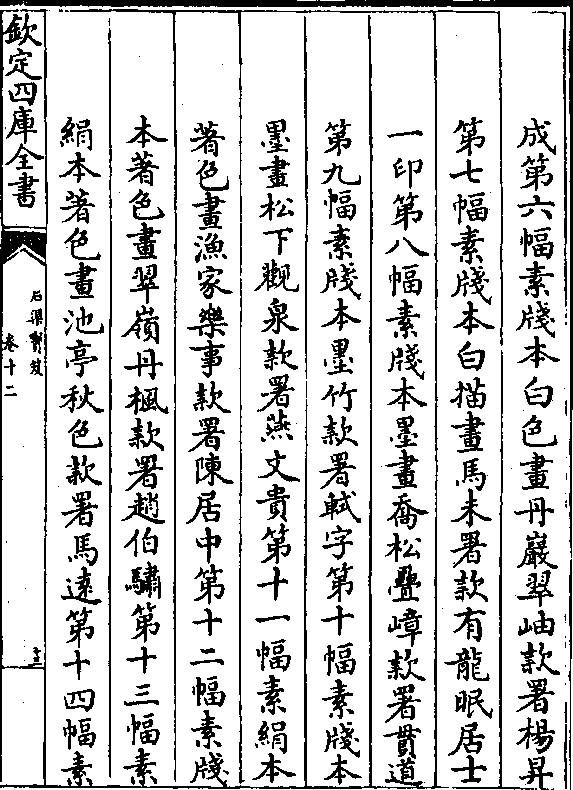 成第六幅素牋本白色畫丹巖翠岫款署楊昇
第七幅素牋本白描畫馬未署款有龍眠居士
一印第八幅素牋本墨畫喬松疊嶂款署貫道
第九幅素牋本墨竹款署軾字第十幅素牋本
墨畫松下觀泉款署燕文貴第十一幅素絹本
著色畫漁家樂事款署陳居中第十二幅素牋
本著色畫翠嶺丹楓款署趙伯驌第十三幅素
絹本著色畫池亭秋色款署馬逺第十四幅素
欽定四庫全書
石渠寳笈
卷十二